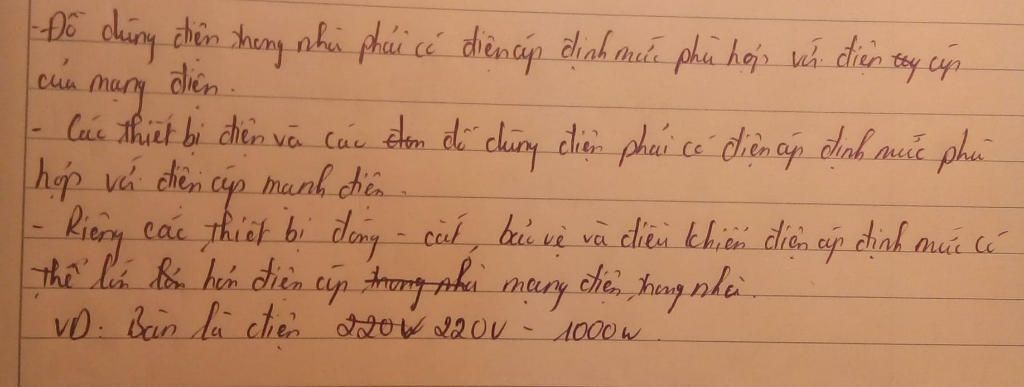 - Đồ dùng điện trong nhà phải có điện áp định mức phù hợp với điện áp
của mạng điện.
- Các thiết bị điện và các đồ dùng điện phải có điện áp định mức phù
hợp với điện áp mạnh điện.
- Riêng các thiết bị đóng - cắt, bảo vệ và điều khiển điện áp định mức có
thể lớn hơn điện áp mạng điện trong nhà.
VD: Bàn là điện 220V - 1000W.